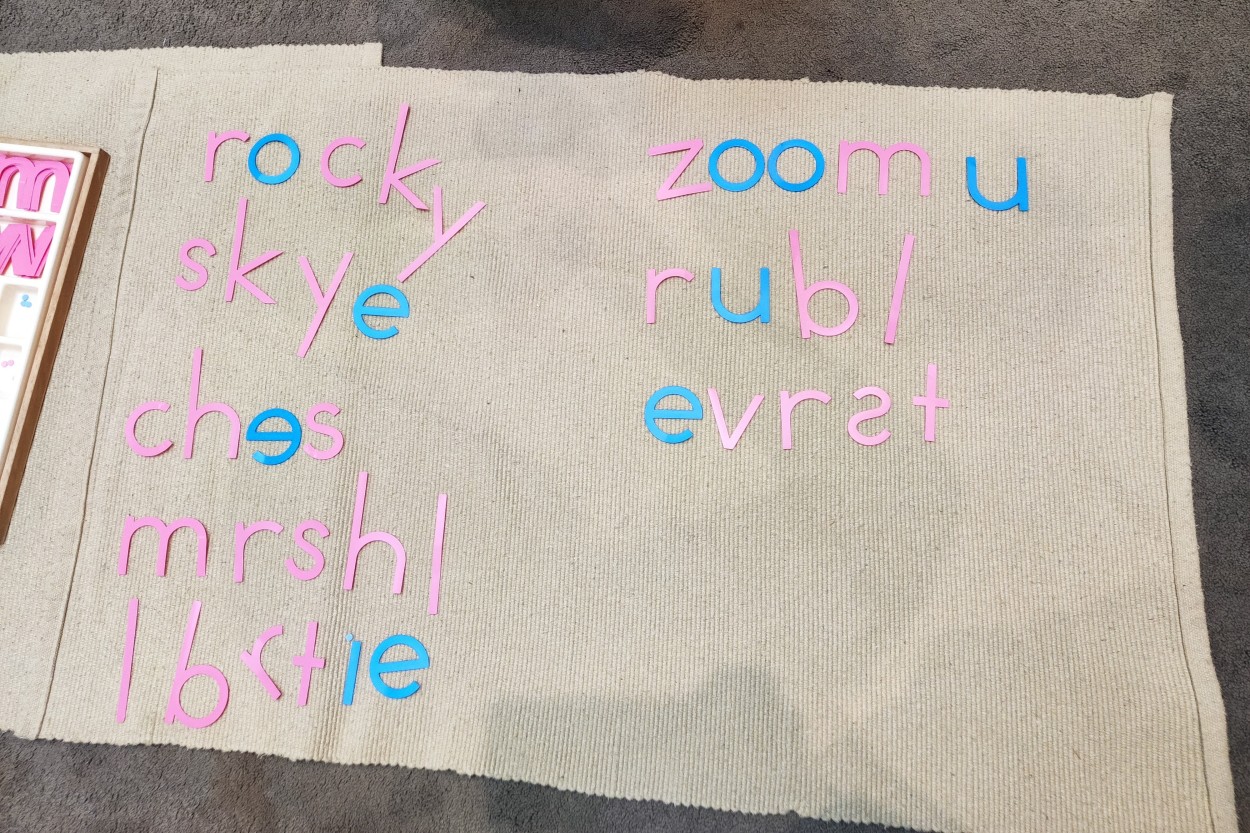 rocky
skye
ches
mrshl
lbrtie
zoom u
rubl
evrst